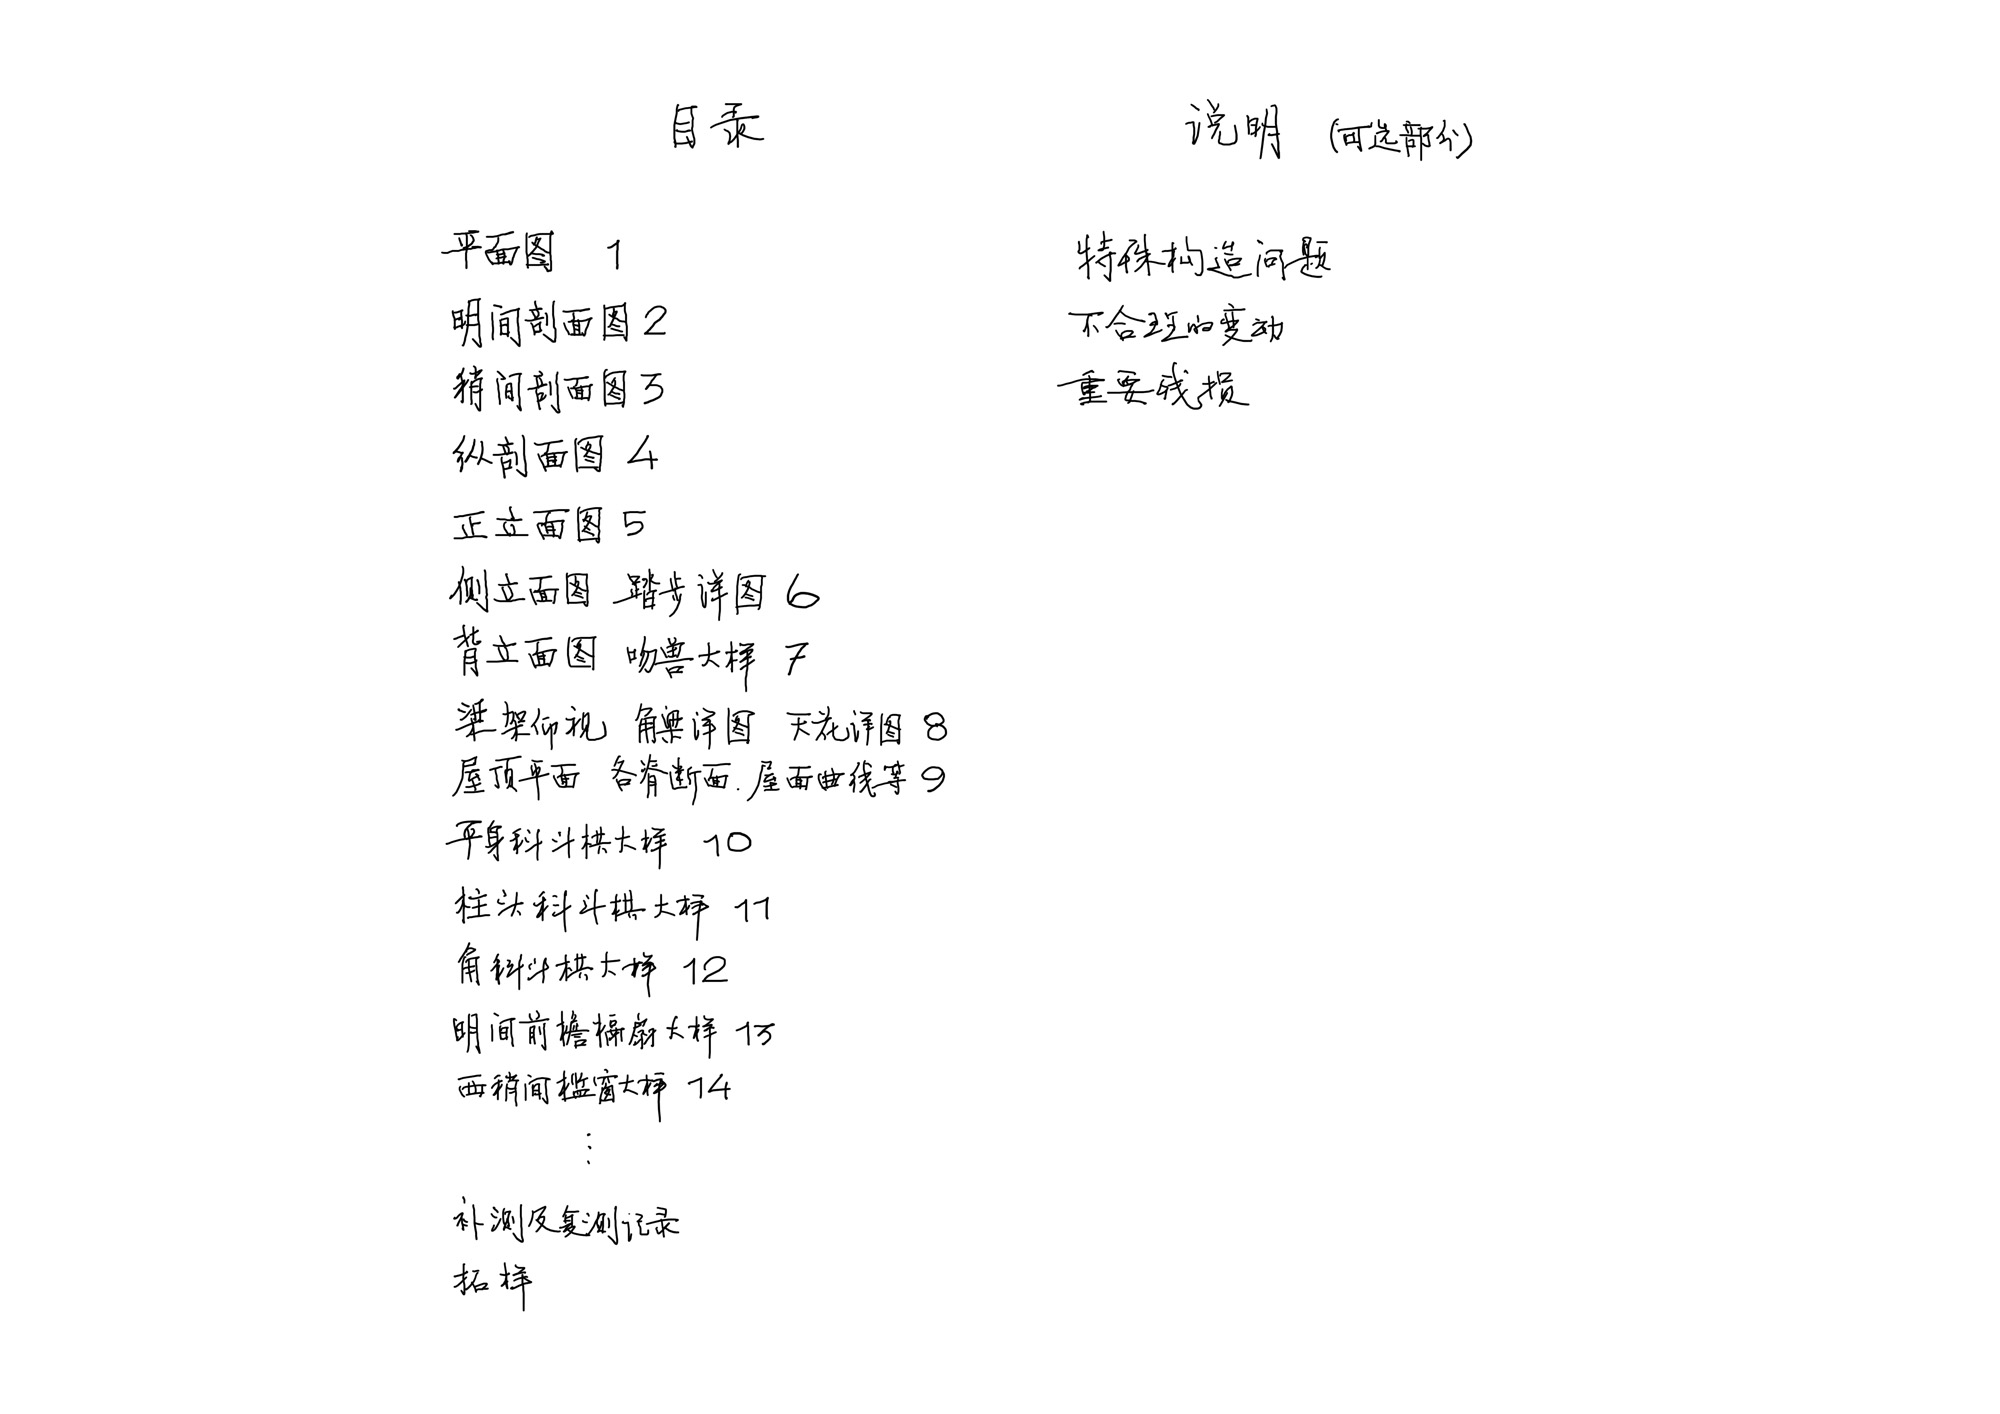 目录
平面图 1
明间剖面图 2
稍间剖面图 3
纵剖面图 4
正立面图 5
侧立面图 踏步详图 6
背立面图 吻兽大样 7
梁架仰视 角梁详图 天花详图 8
屋顶平面 各脊断面.屋面曲线等 9
平身科斗栱大样 10
柱头科斗栱大样 11
角科斗栱大样 12
明间前檐槅扇大样 13
西稍间槛窗大样 14
⋮
补测及复测记录
拓样
说明 (可选部分)
特殊构造问题
不合理的变动
重要残损